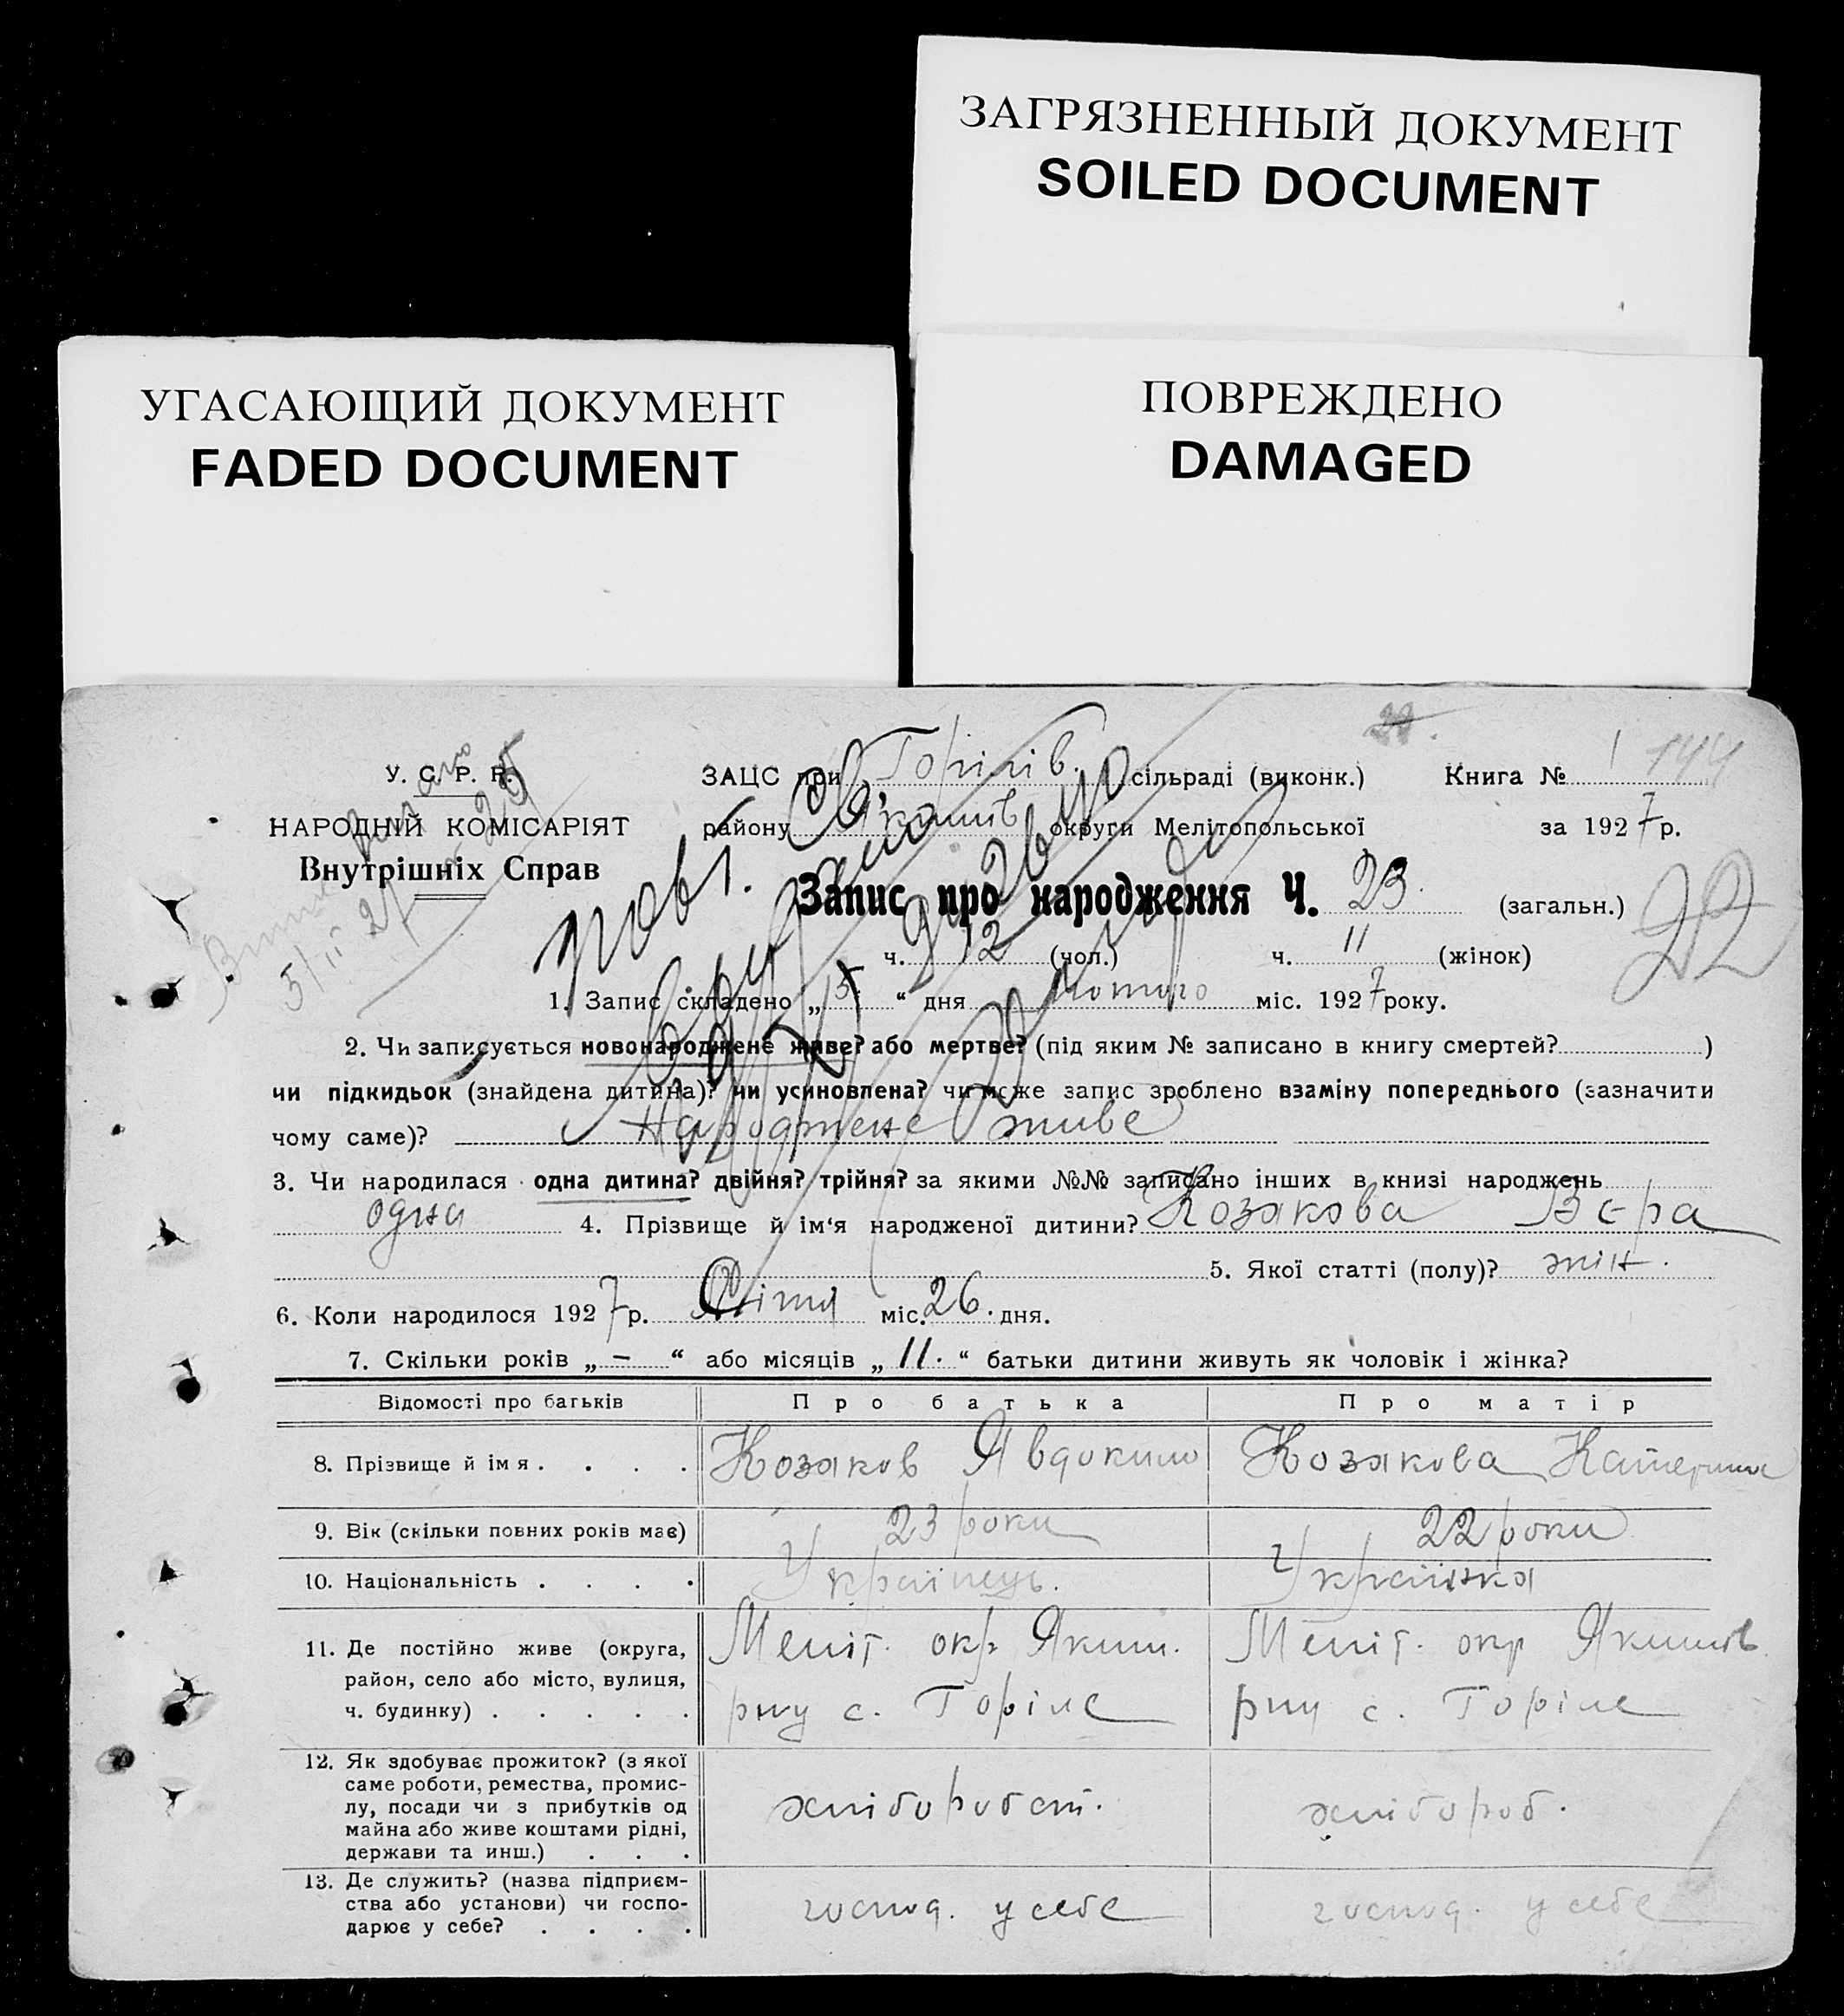 ЗАГРЯЗНЕННЫЙ ДОКУМЕНТ
SOILED DOCUMENT
УГАСАЮЩИЙ ДОКУМЕНТ
FADED DOCUMENT
ПОВРЕЖДЕНО
DAMAGED
У. С. Р. Р.
НАРОДНІЙ КОМІСАРІЯТ
Внутрішніх Справ
ЗАЦС при Горілів. сільраді (виконк.) Книга № 1 144
району Якимів округи Мелітопольської за 1927 р.
Запис про народження Ч. 23 (загальн.) 22
ч. 12 (чол.) ч. 11 (жінок)
1. Запис складено „5“ дня лютого міс. 1927 року.
2. Чи записується новонароджене живе? або мертве? (під яким № записано в книгу смертей? )
чи підкидьок (знайдена дитина)? чи усиновлена? чи може запис зроблено взаміну попереднього (зазначити
чому саме)? Народжене живе
3. Чи народилася одна дитина? двійня? трійня? за якими №№ записано інших в книзі народжень
одна 4. Прізвище й ім‘я народженої дитини? Козакова Вєра
5. Якої статті (полу)? жін.
6. Коли народилося 1927 р. Січня міс. 26. дня.
7. Скільки років „ – “ або місяців „ 11. “ батьки дитини живуть як чоловік і жінка?
Відомості про батьків Про батька Про матір
8. Прізвище й імя . . . . Козаков Явдоким Козакова Катерина
9. Вік (скільки повних років має) 23 роки 22 роки
10. Національність . . . . Українець. Українка
11. Де постійно живе (округа, Меліт. окр Яким. Меліт. окр Якимів
район, село або місто, вулиця,
ч. будинку) . . . . . рну с. Горіле рну с. Горіле
12. Як здобуває прожиток? (з якої
саме роботи, ремества, промис-
лу, посади чи з прибутків од хліборобст. хлібороб.
майна або живе коштами рідні,
держави та инш.) . . .
13. Де служить? (назва підприєм-
ства або установи) чи госпо- господ. у себе господ. у себе
дарює у себе? . . . .